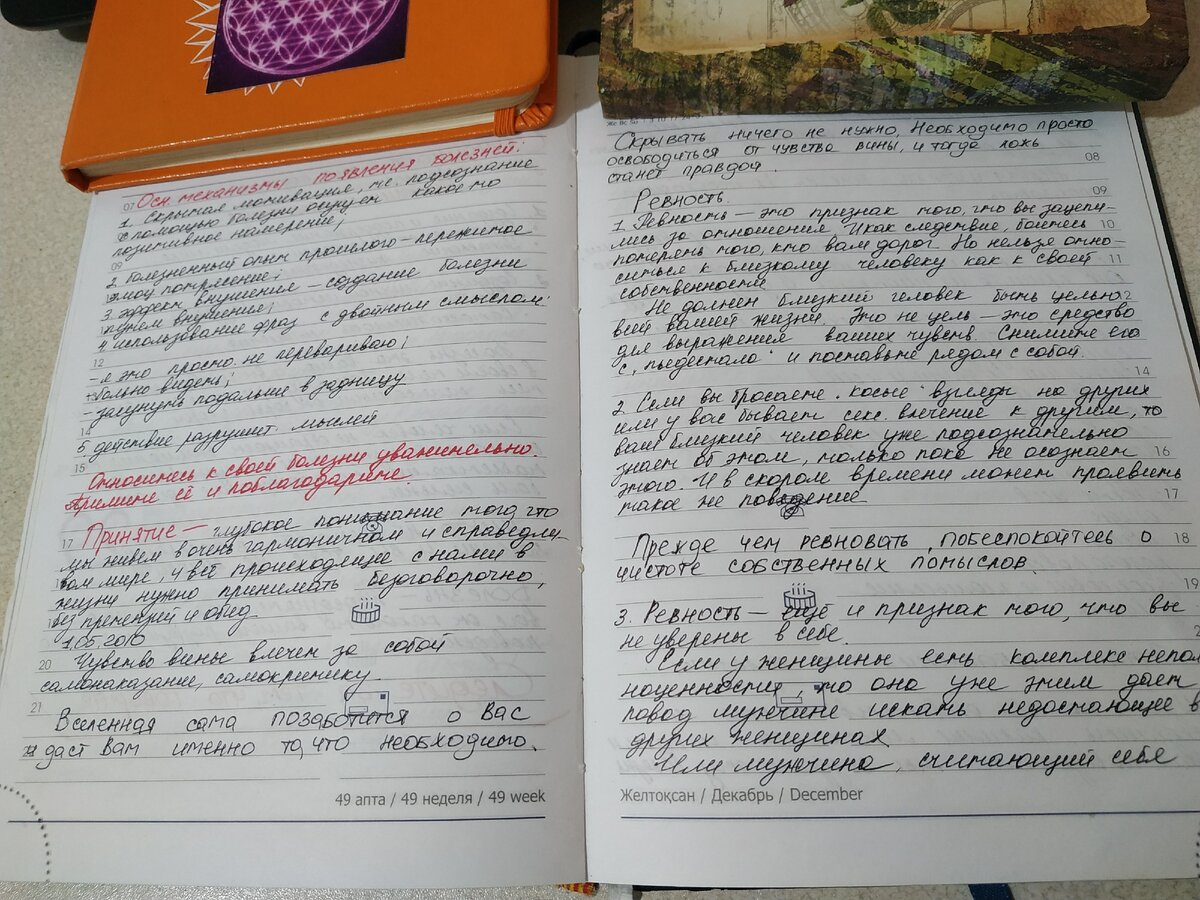 Осн механизмы появления болезней:
07
1. Скрытая мотивация, т.е. подсознание
с помощью болезни осущ-ет какое то
позитивное намерение;
09
2 Болезненный опыт прошлого - пережитое
эмоц потрясение;
3. эффект внушения - создание болезни
путём внушения;
4 использование фраз с двойным смыслом:
12
- я это просто не перевариваю;
- больно видеть;
- засунуть подальше в задницу
14
5. действие разрушит. мыслей
15
Относитесь к своей болезни уважительно.
Примите её и поблагодарите.
17 Принятие - глубокое понимание того, что
мы живем в очень гармоничном и справедли-
вом мире, и всё происходящее с нами в
жизни нужно принимать безоговорочно,
без претензий и обид.
1.05.2010
20
Чувство вины влечет за собой
самонаказание, самокритику.
21
Вселенная сама позаботится о Вас
и даст Вам именно то, что необходимо.
49 апта / 49 неделя / 49 week
Скрывать ничего не нужно. Необходимо просто
освободиться от чувства вины, и тогда ложь
08
станет правдой.
09
Ревность.
1 Ревность - это признак того, что вы зацепи-
лись за отношения. И как следствие, боитесь 10
потерять того, кто вам дорог. Но нельзя отно-
ситься к близкому человеку как к своей 11
собственности
Не должен близкий человек быть целью
всей вашей жизни. Это не цель - это средство
для выражения ваших чувств. Снимите его
с „пьедестала" и поставьте рядом с собой.
14
2 Если вы бросаете „косые" взгляды на других
или у вас бывает секс. влечение к другим, то
ваш близкий человек уже подсознательно
знает об этом, только пока не осознает 16
этого. И в скором времени может проявить
такое же поведение 17
Прежде чем ревновать, побеспокойтесь о 18
чистоте собственных помыслов.
19
3. Ревность - ещё и признак того, что вы
не уверены в себе.
Если у женщины есть комплекс непол
ноценности, то она уже этим дает
повод мужчине искать недостающее в
других женщинах
Или мужчина, считающий себя
Желтоқсан / Декабрь / December